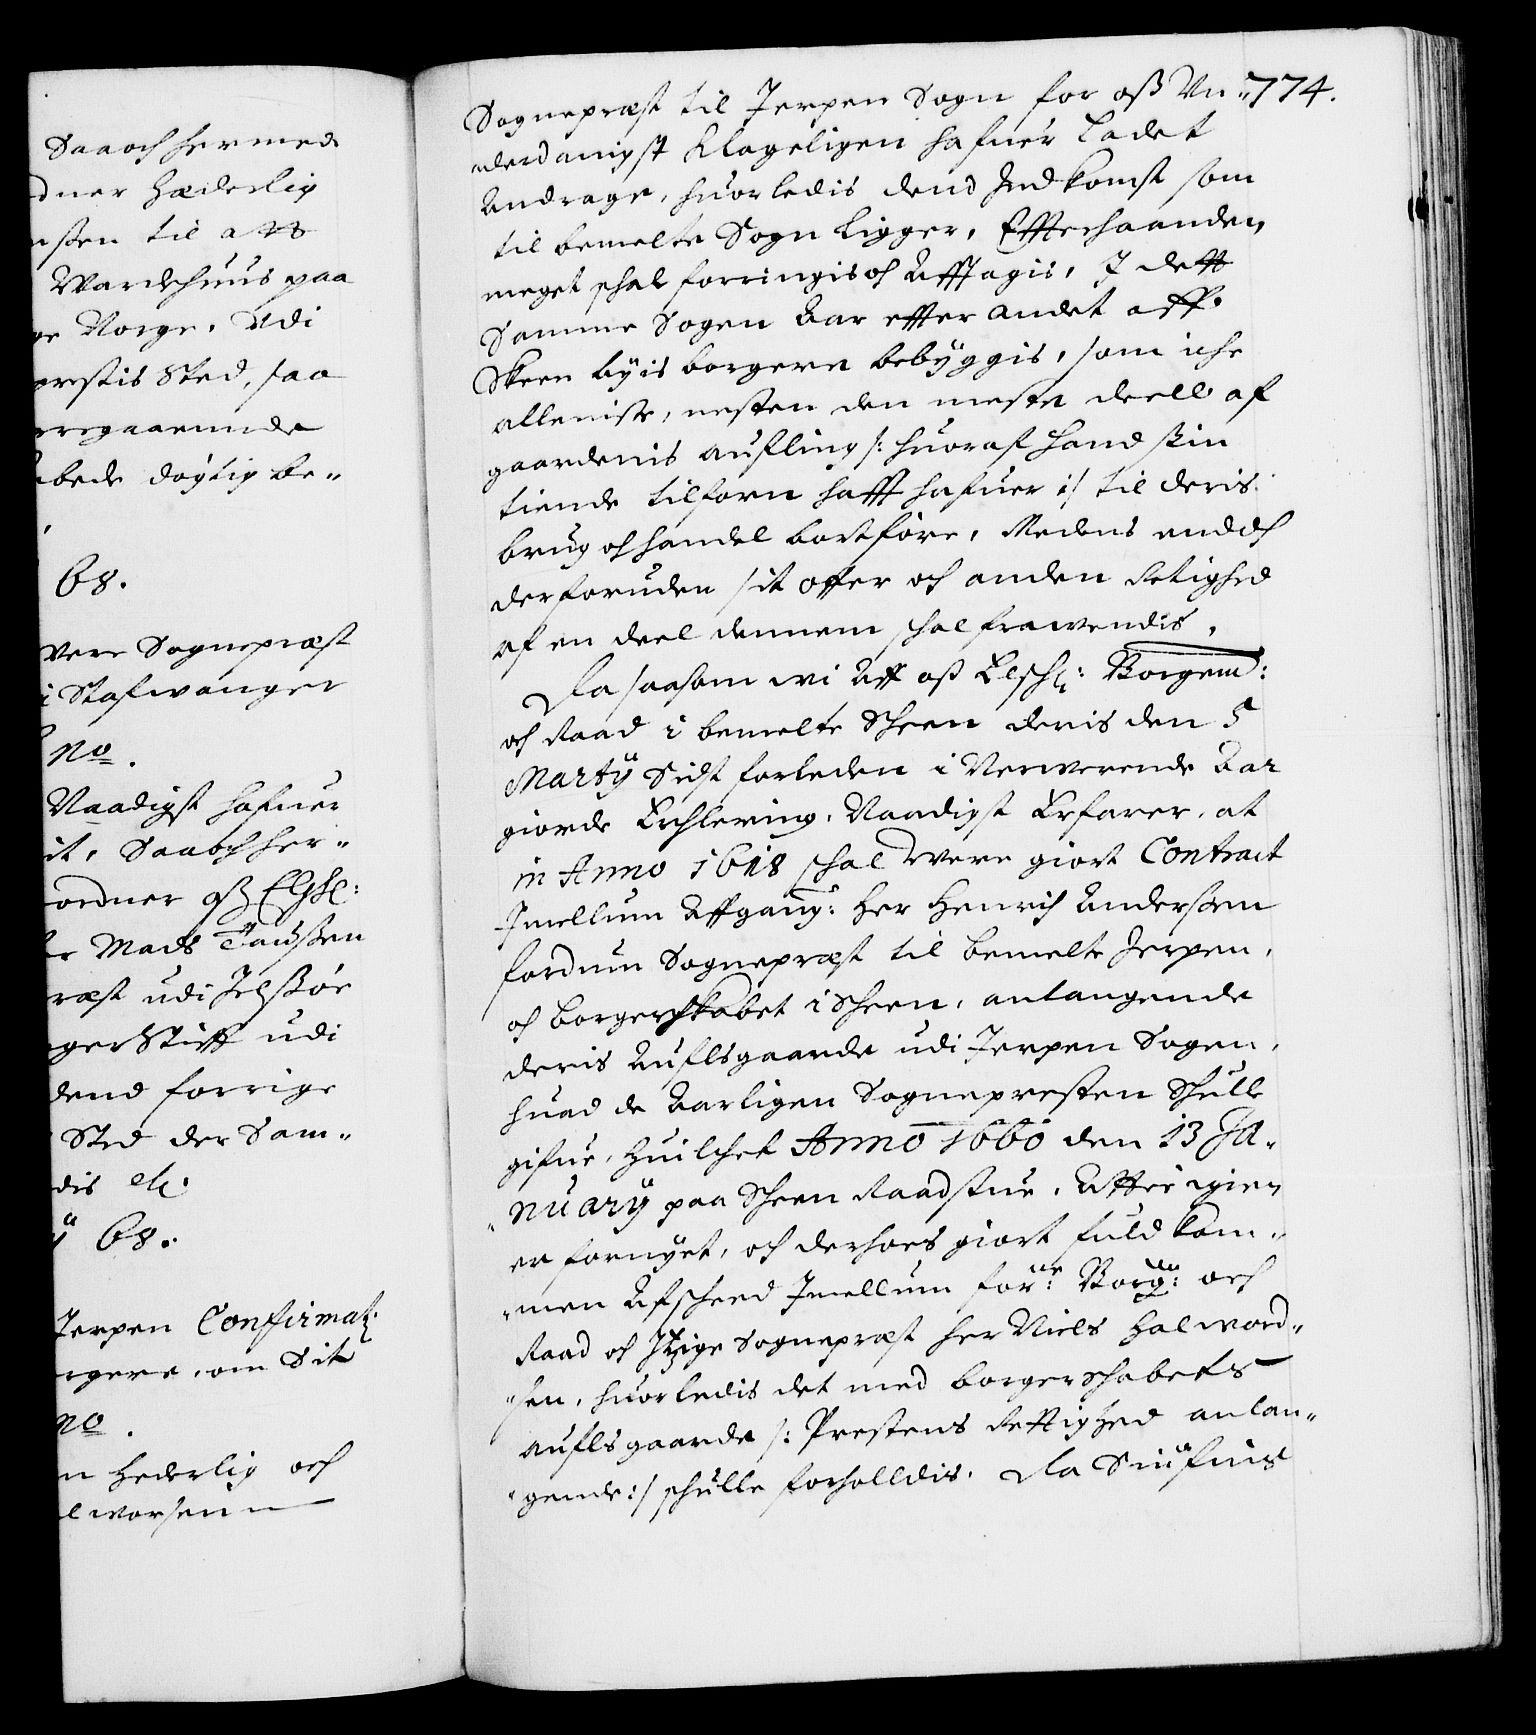 Saaoch hermed
dner Hæderlig
nßen til att
Wardehuus paa
ge Norge, Udi
prestis Sted, saa
ergaaende
bede dögtig be„
68.
vere Sognepræst
i Stafwanger
no.
Naadigst hafuer
it, Saaoch her„
ordner oß Elskl:
r Mads Taußen
ræst udi Jelßöe
ger Stifft udi
dend forrige
Sted der Sam„
dis etc.
ÿ 68.
Jerpen Confirmat:
rgere, om Sit
no.
n Hederlig och
lworsenn
774.
Sognepræst til Jerpen Sogn for oß Un„
„derdanigst Klageligen hafuer ladet
Andrage, huorledis dend Indkomst som
til bemelte Sogn ligger, Effterhaanden,
meget schal forringis och Afftagis, I dett
Samme Sogen Aar effter andet aff
Skeen byis borgere bebÿggis, som iche
alleniste, nesten den meste deell af
gaardenis aufling /: huoraf Hand ßin
tiende tilforn hafft hafuer :/ til deris
brug och handel bortföre, Medens endoch
derforuden sit offer och anden Retighed
af en deel dennem schal frawendis,
Da saasom wi Aff oß Elschl: Borgem:
och Raad i bemelte Scheen deris den 5
Martÿ Sidst forleden i Nerwerende Aar
giorde Erchlering, Naadigst Erfarer, at
in Anno 1618 schal were giort Contract
Imellum Affgang: Her Henrich Anderßen
fordum Sognepræst til bemelte Jerpen,
och borgerskabet i Scheen, anlangende
deris Auflsgaarde udi Jerpen Sogen,
huad de Aarligen Sognepresten Schulle
gifue, Huilchet Anno 1660 den 13 Ja„
„nuarÿ paa Scheen Raadstue, Atter igien
er fornÿet, och derhoes giort fuldkom„
„men Afscheed Imellum forne: Borg: och
Raad och Itzige Sognepræst Her Niels Halword„
„sen, huorledis det med borgerschabets
auflsgaarde /: Prestens Rettighed anlan„
„gende:/ schulle forholldis. Da Siufnis